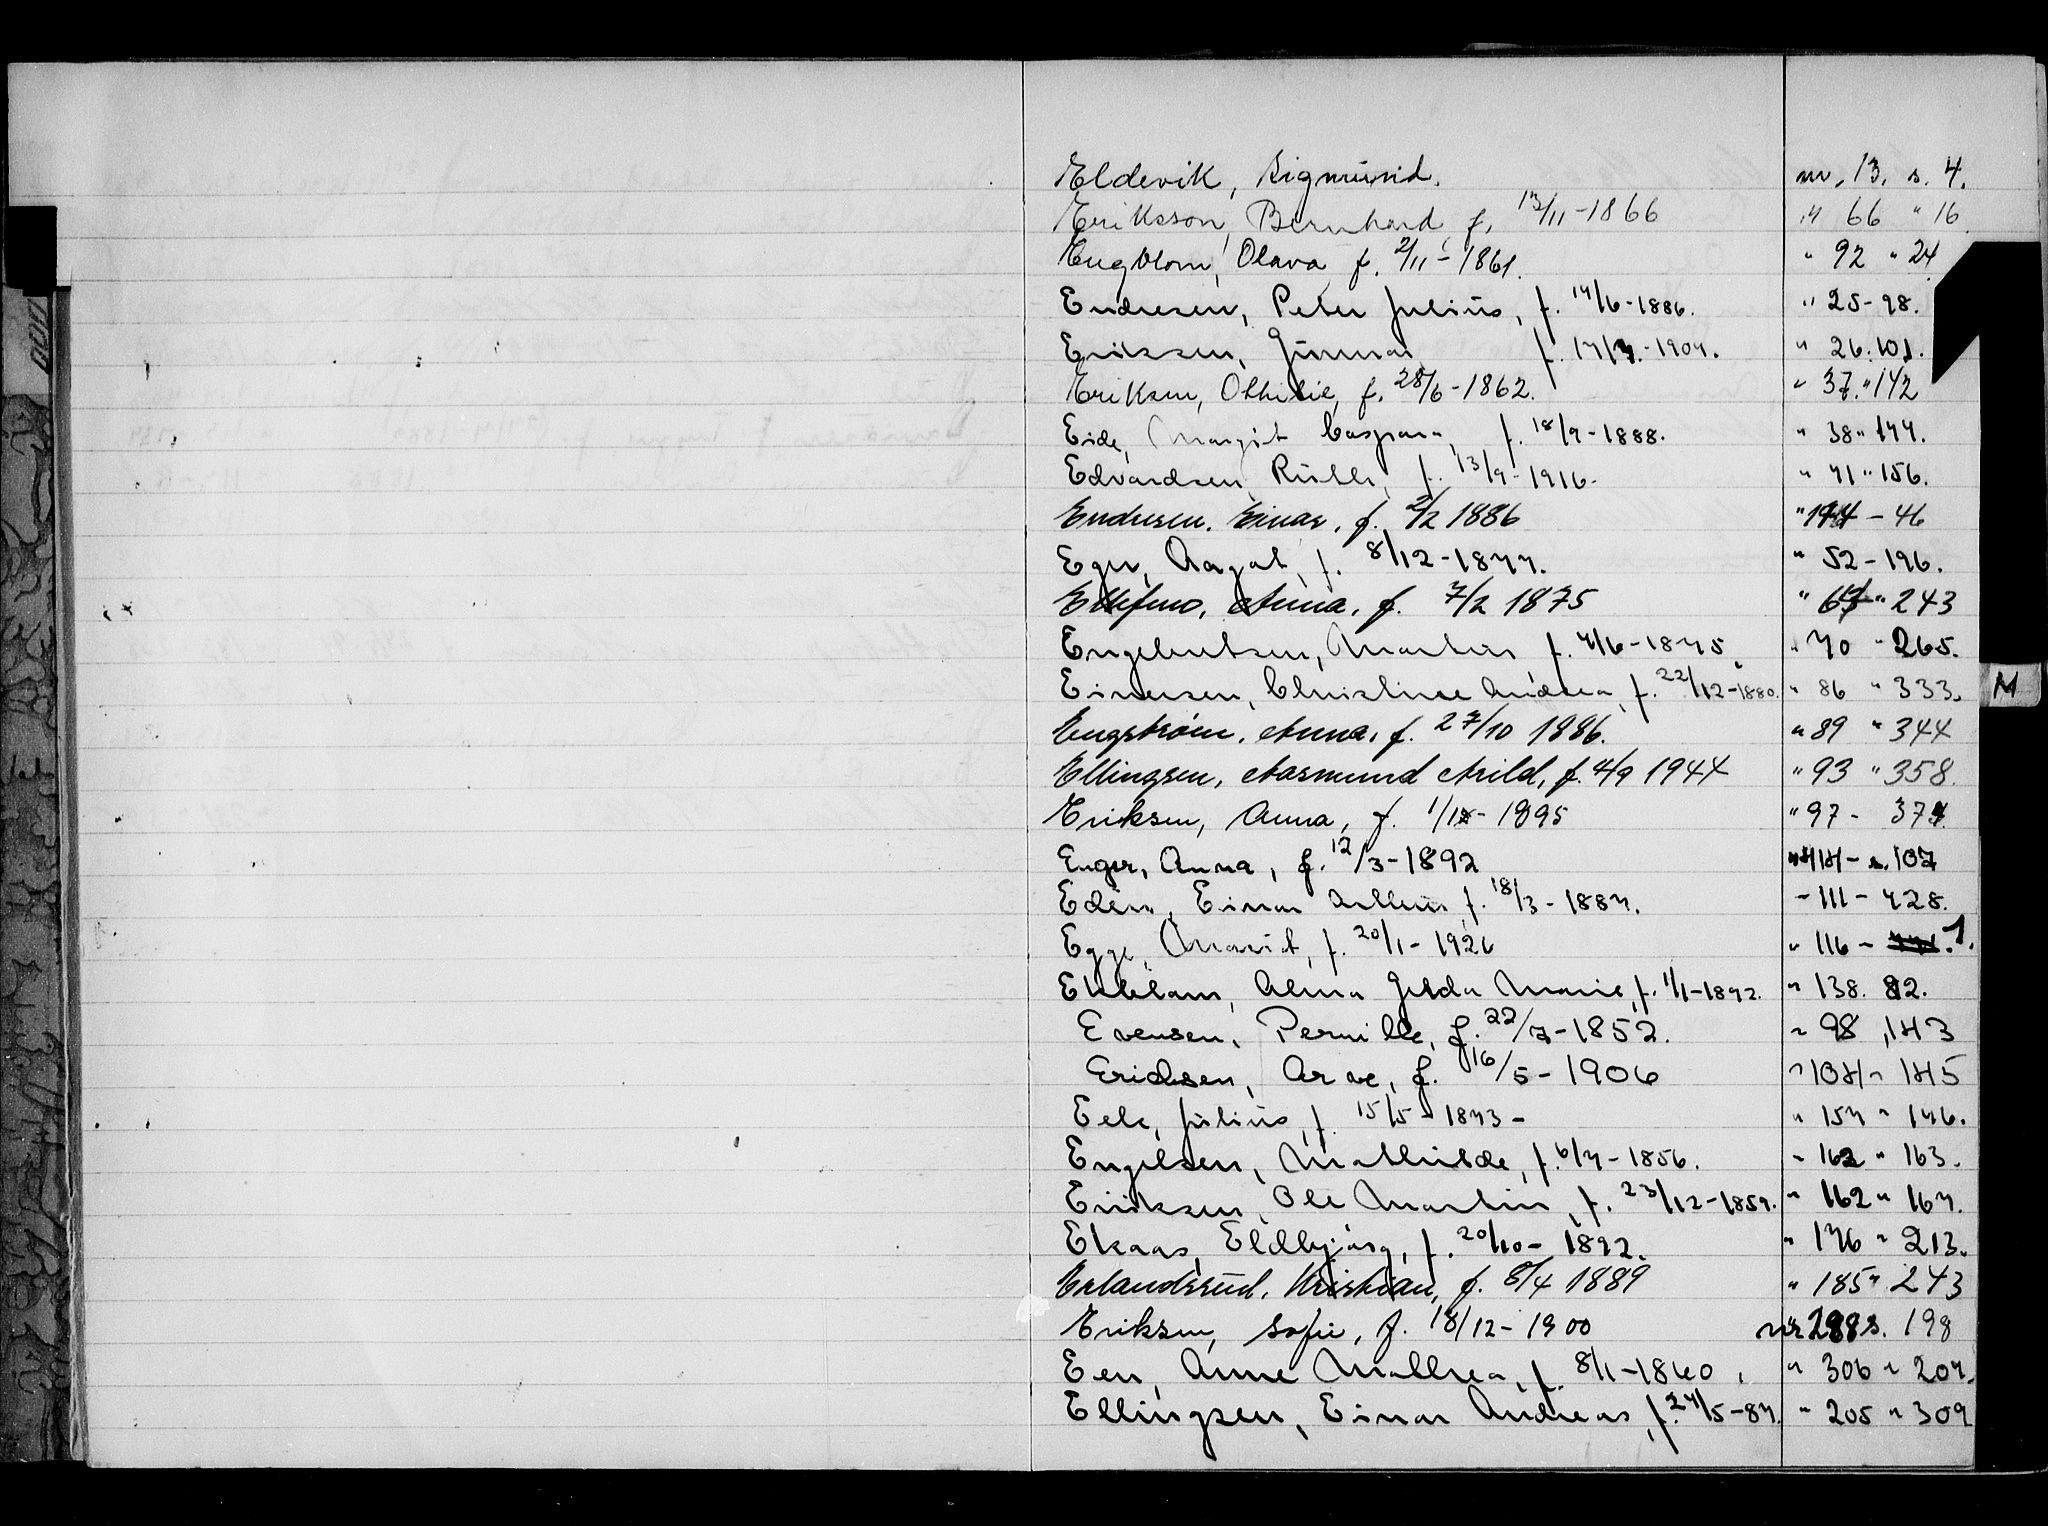 Eldevik, Sigmund. nr. 13. s. 4.
Eriksson, Bernhard f. 13/11-1866 " 66 " 16
Engblom, Olava f. 2/11-1861. " 92 " 24
Endresen, Peter Julius, f. 14/6-1886. " 25-98.
Eriksen, Gunnar f. 14/4.-1904. " 26. 101.
Eriksen, Othilie, f. 28/6-1862. " 37. " 142
Eide, Margit Caspara, f. 18/9-1888. " 38 " 144.
Edvardsen, Ruth, f. 13/9-1916. " 41 " 156.
Endresen. Einar. f. 2/2 1886 " 144 - 46
Eger, Aagot, f. 8/12-1877. " 52-196.
Ellefmo, Anna, f. 7/2 1875 " 63 " 243
Engebretsen, Martin f. 4/6-1875 " 70 " 265.
Einersen, Christine Andrea, f. 22/12-1880. " 86 " 333.
Engstrøm, Anna, f. 27/10 1886. " 89 " 344
Ellingsen, Aasmund Arild, f. 4/9 1944 " 93 " 358.
Eriksen, Anna, f. 1/12-1895 " 97 - 374.
Enger, Anna, f. 12/3-1892 " 414 - s. 107
Edin, Einar Arthur f. 18/3-1884. - 111 - 428.
Egge, Marit, f. 20/1-1926 " 116 - 1.
Ekblam, Alma Gilda Marie, f. 1/1-1892. " 138. 82.
Evensen, Pernille, f. 22/7-1852. " 98, 143
Erichsen, Arne, f. 16/5-1906 " 104 " 145
Eek, Julius, f. 15/5-1873- " 154 " 146.
Engelsen, Mathilde, f. 6/4-1856. " 162 " 163.
Eriksen, Ole Martin, f. 23/12-1859. " 162 " 164.
Ekaas, Eldbjørg, f. 20/10-1892. " 176 " 213.
Erlandsrud, Kristian, f. 8/4 1889 " 185 " 243
Eriksen, Sofie, f. 18/12-1900 nr 288 s. 198
Een, Anne Mathea, f. 8/1-1860. " 306 " 204.
Ellingsen, Einar Andreas, f. 24/5-84. " 205 " 309
M